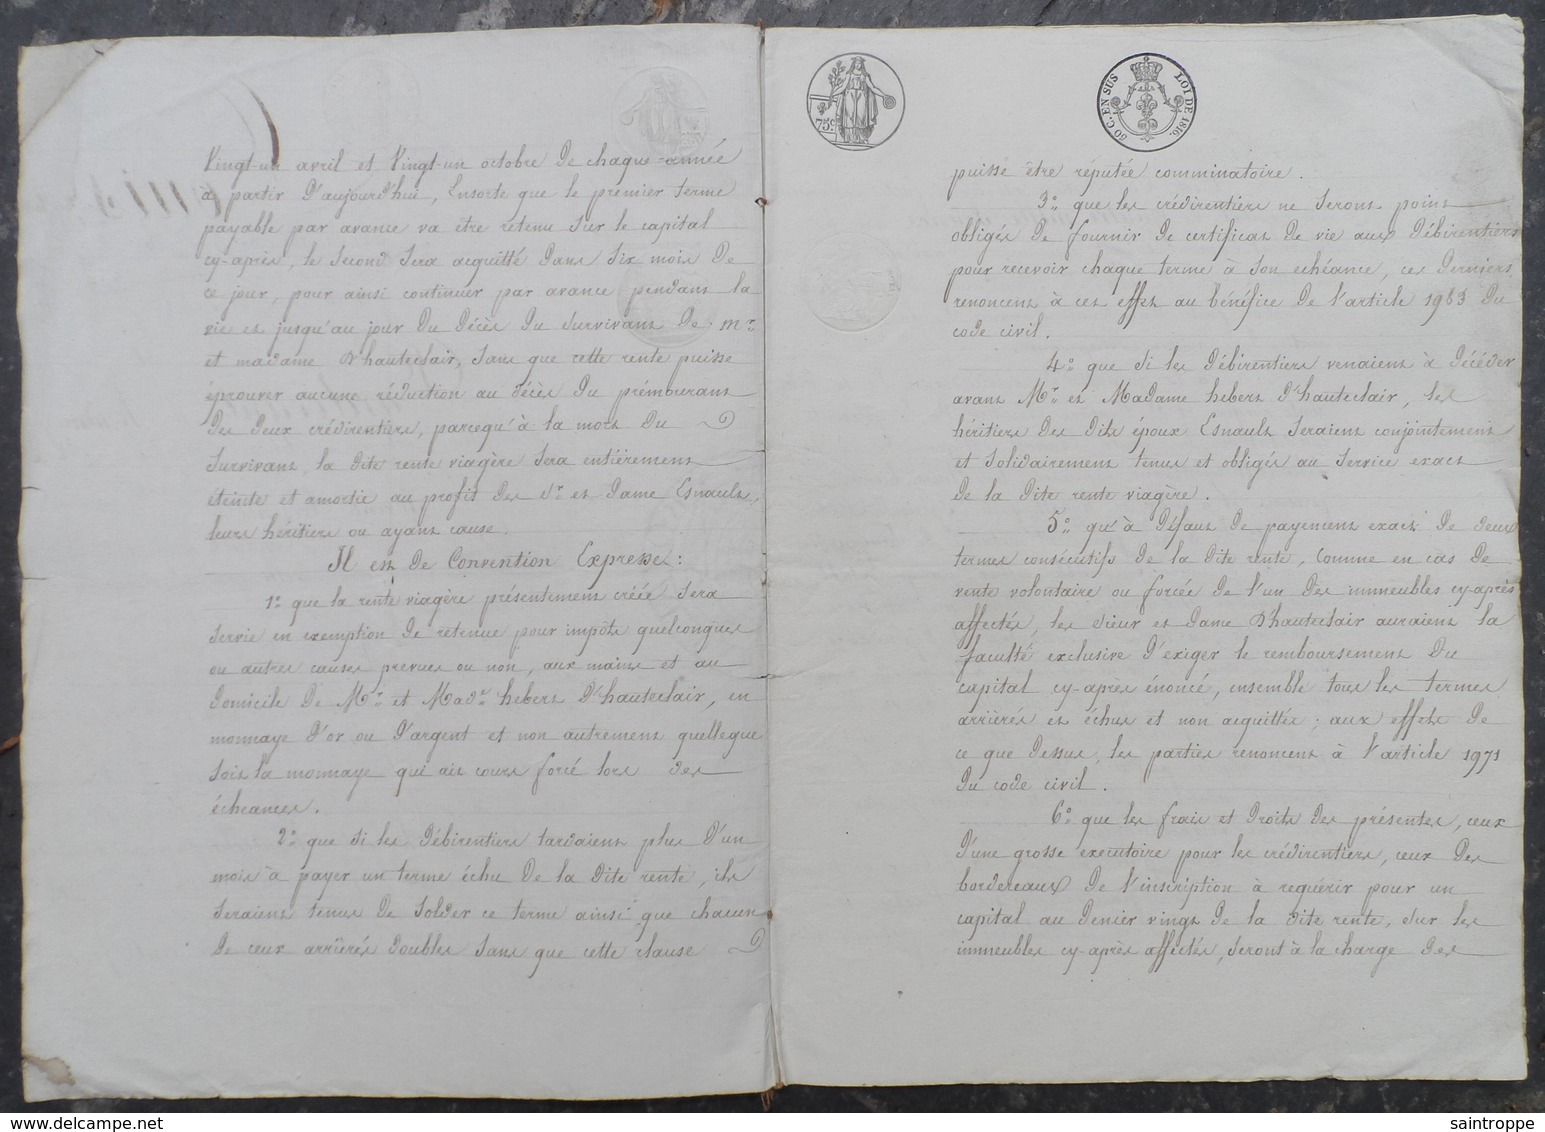 Vingt-un avril et Vingt-un octobre de chaque année
a partir d'aujourd'hui, Ensorte que le premier terme
payable par avance va être retenu sur le capital
cy-après, le second sera acquitté dans six mois de
ce jour, pour ainsi continuer par avance pendant la
vie et jusqu'au jour du décès du survivant de mr
et madame d'hauteclair, sans que cette rente puisse
éprouver aucune réduction au décès du prémourant
des deux crédirentiers, parcequ'à la mort du
survivant, la dite rente viagère sera entièrement
éteinte et amortie au profit des Sr et Dame Esnault,
leurs héritiers ou ayant cause.
Il est de Convention Expresse :
1° que la rente viagère présentement créée sera
servie en exemption de retenue pour impôts quelconques
ou autres causes prevues ou non, aux mains et au
domicile de Mr et Made hebert d'hauteclair, en
monnaye d'or ou d'argent et non autrement quelleque
soit la monnaye qui ait cours forcé lors des
échéances.
2° que si les débirentiers tardaient plus d'un
mois à payer un terme échu de la dite rente, ils
seraient tenus de solder ce terme ainsi que chacun
de ceux arrièrés doubles sans que cette clause
75c
50 C. EN SUS LOI DE 1816.
puisse être réputée comminatoire.
3° que les crédirentiers ne seront point
obligés de fournir de certificat de vie aux débirentiers
pour recevoir chaque terme à son echéance, ces derniers
renoncent à cet effet au bénéfice de l'article 1983 du
code civil.
4° que si les débirentiers venaient à décéder
avant Mr et Madame hebert d'hauteclair, les
héritiers des dits époux Esnault seraient conjointement
et solidairement tenus et obligés au service exact
de la dite rente viagère.
5° qu'à défaut de payement exact de deux
termes consécutifs de la dite rente, comme en cas de
vente volontaire ou forcée de l'un des immeubles cy-après
affectés, les sieur et Dame d'hauteclair auraient la
faculté exclusive d'exiger le remboursement du
capital cy-après énoncé, ensemble tous les termes
arrièrés et échus et non acquittés ; aux effets de
ce que dessus, les parties renoncent à l'article 1971
du code civil.
6° que les frais et droits des présentes, ceux
d'une grosse executoire pour les crédirentiers, ceux des
bordereaux de l'inscription à requérir pour un
capital au denier vingt de la dite rente, sur les
immeubles cy-après affectés, seront à la charge des
saintroppe